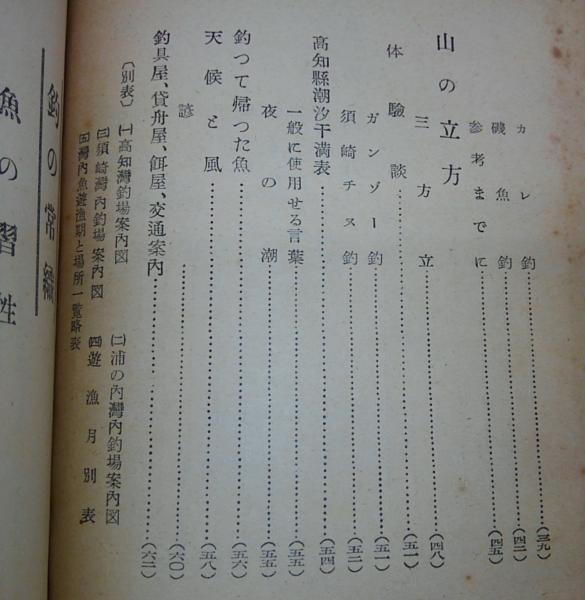 カレ釣……………(三九)
磯魚釣……………(四二)
参考までに……………(四五)
山の立方……………(四八)
三方立
体驗談……………(五一)
ガンゾー釣……………(五一)
須崎チヌ釣……………(五二)
高知縣潮汐干満表……………(五四)
一般に使用せる言葉……………(五五)
夜の潮……………(五五)
釣つて帰つた魚……………(五六)
天候と風……………(五八)
諺……………(六〇)
釣具屋、貸舟屋、餌屋、交通案内……………(六二)
〔別表〕 (一)高知灣釣場案内図 (二)浦の內灣內釣場案內図
(三)須崎灣內釣場案內図 (四)遊漁月別表
(五)灣內魚遊漁期と場所一覧略表
釣の常識
魚の習性